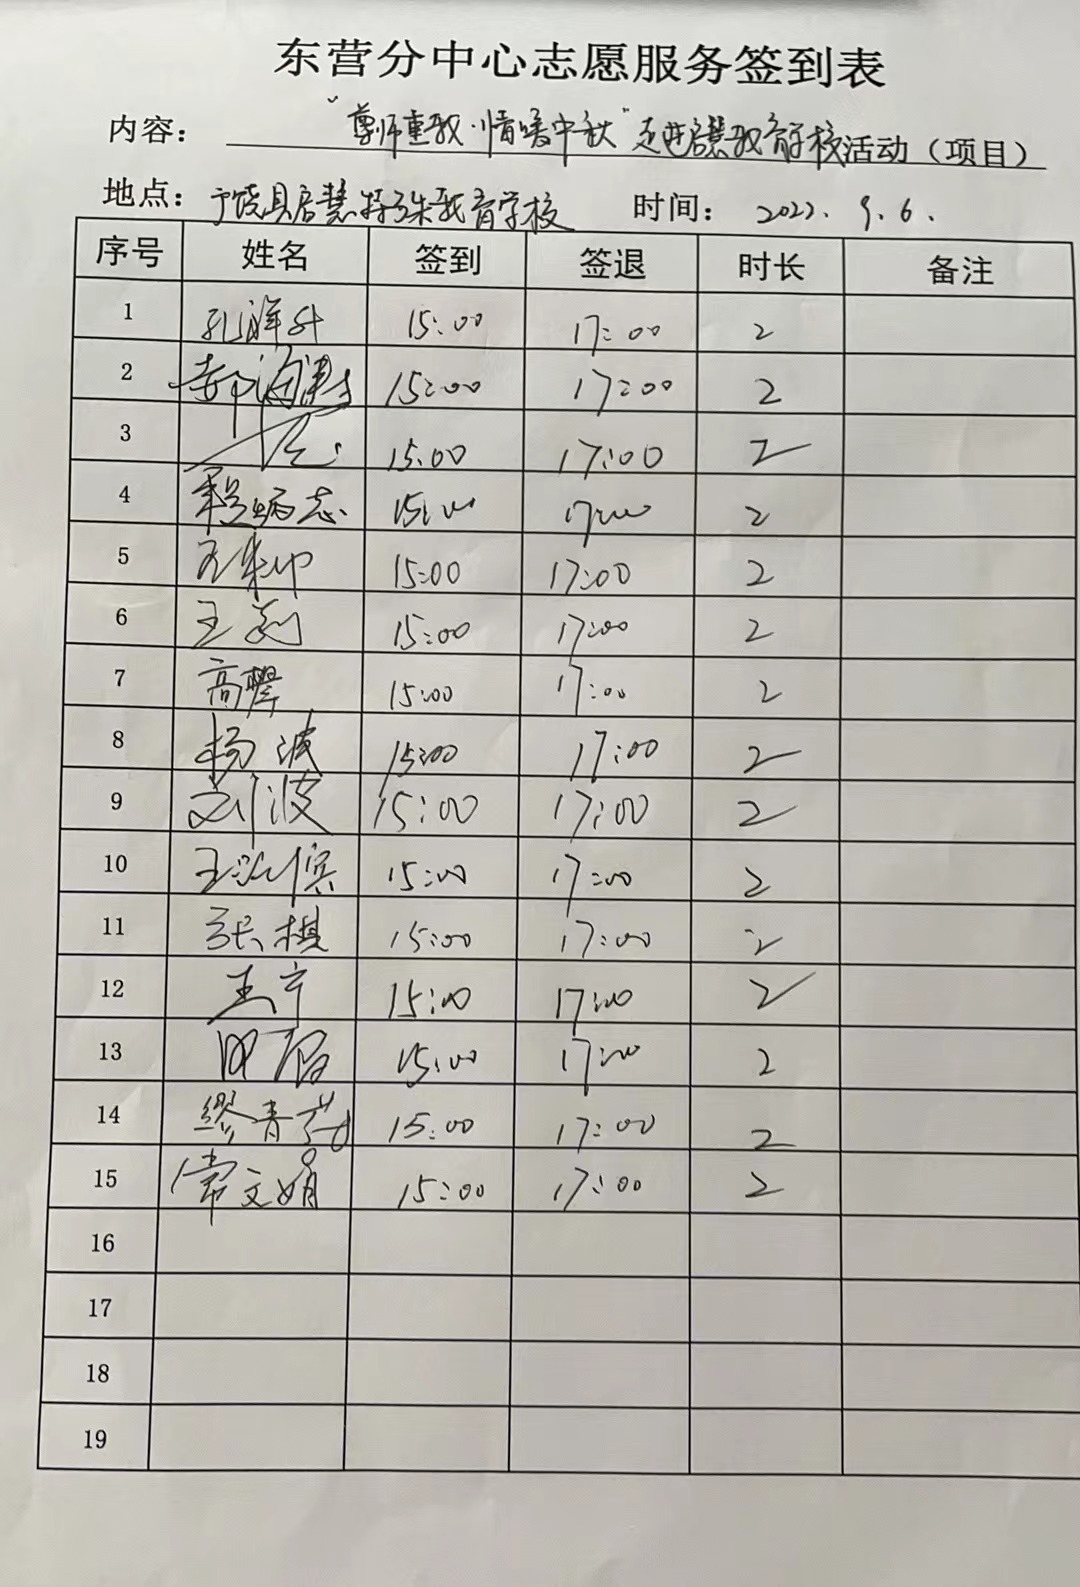 东营分中心志愿服务签到表
内容： “尊师重教·情暖中秋”走进启慧教育学校活动（项目）
地点：广饶县启慧特殊教育学校 时间： 2022.9.6.
序号 姓名 签到 签退 时长 备注
1 15:00 17:00 2
2 15:00 17:00 2
3 15:00 17:00 2
4 15:00 17:00 2
5 15:00 17:00 2
6 15:00 17:00 2
7 15:00 17:00 2
8 杨波 15:00 17:00 2
9 刘波 15:00 17:00 2
10 15:00 17:00 2
11 张棋 15:00 17:00 2
12 王宁 15:00 17:00 2
13 15:00 17:00 2
14 15:00 17:00 2
15 常文娟 15:00 17:00 2
16
17
18
19